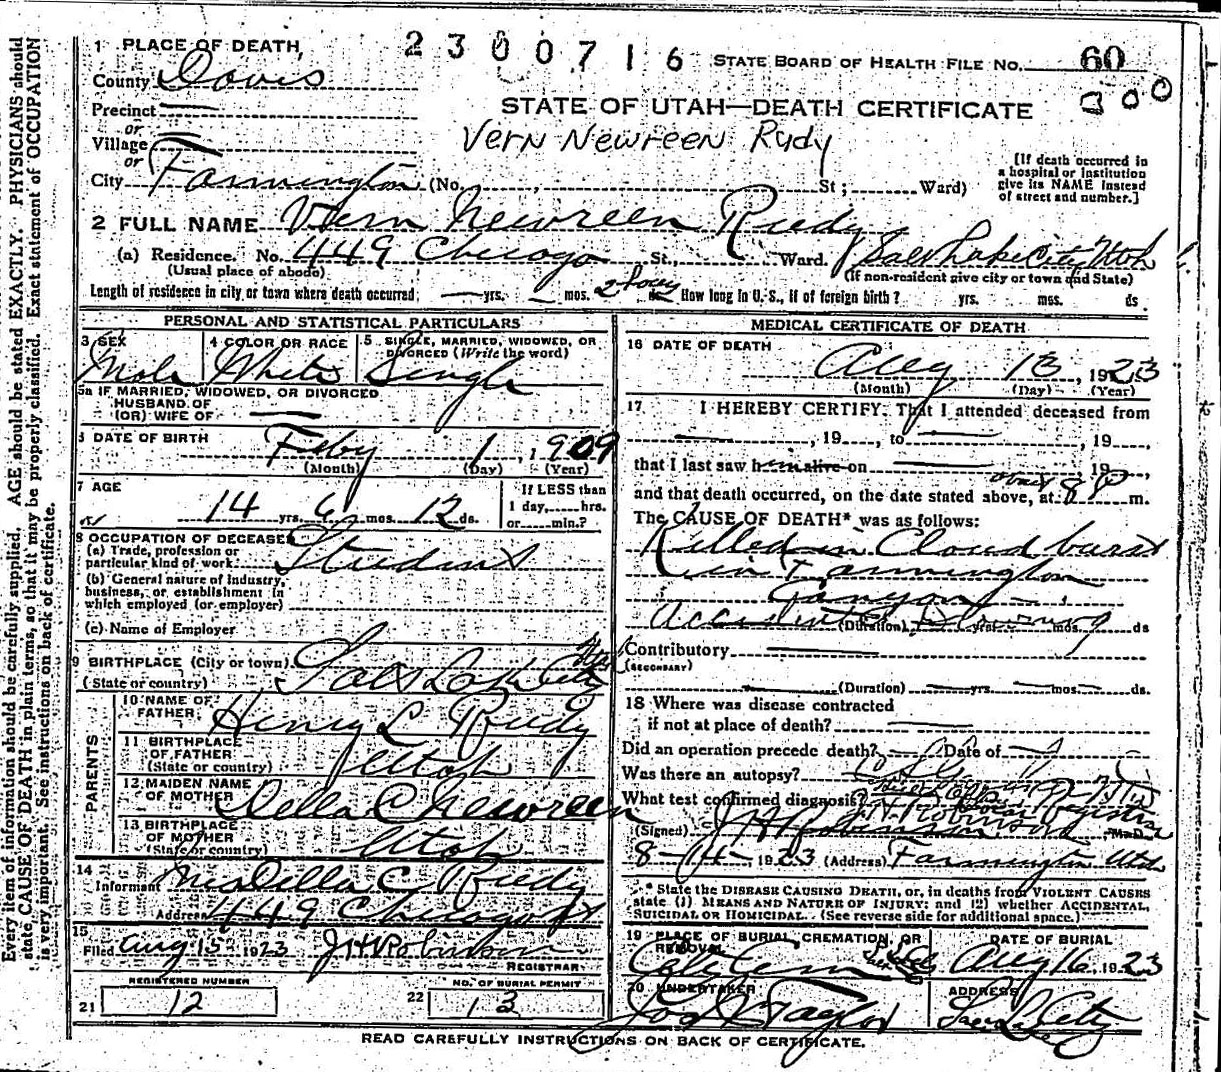 2300716 STATE BOARD OF HEALTH FILE NO. 60
300
STATE OF UTAH—DEATH CERTIFICATE
Vern Newreen Rudy
1 PLACE OF DEATH,
County Davis
Precinct
or
Village
or
City Farmington (No. , St; Ward)
[If death occurred in
a hospital or institution
give its NAME instead
of street and number.]
2 FULL NAME Vern Newreen Rudy
(a) Residence. No. 449 Chicago St., Ward. Salt Lake City Utah
(Usual place of abode) (If non-resident give city or town and State)
Length of residence in city or town where death occurred yrs. mos. 2 days ds. How long in U.S., if of foreign birth? yrs. mos. ds
PERSONAL AND STATISTICAL PARTICULARS
3 SEX Male
4 COLOR OR RACE White
5 SINGLE, MARRIED, WIDOWED, OR
DIVORCED (Write the word)
Single
5a IF MARRIED, WIDOWED, OR DIVORCED
HUSBAND OF
(OR) WIFE OF
6 DATE OF BIRTH Feby 1, 1909
(Month) (Day) (Year)
7 AGE
14 yrs. 6 mos. 12 ds.
If LESS than
1 day, hrs.
or min.?
8 OCCUPATION OF DECEASED
(a) Trade, profession or
particular kind of work: Student
(b) General nature of Industry,
business, or establishment in
which employed (or employer)
(c) Name of Employer
9 BIRTHPLACE (City or town)
(State or country) Salt Lake City Utah
PARENTS
10 NAME OF
FATHER Henry L Rudy
11 BIRTHPLACE
OF FATHER
(State or country) Utah
12 MAIDEN NAME
OF MOTHER Della C Newreen
13 BIRTHPLACE
OF MOTHER
(State or country) Utah
14
Informant Mrs Della C Rudy
Address 449 Chicago St
15
Filed Aug 15, 1923 J H Robinson
REGISTRAR
REGISTERED NUMBER
21 12
NO. OF BURIAL PERMIT
22 13
MEDICAL CERTIFICATE OF DEATH
16 DATE OF DEATH
Aug 13, 1923
(Month) (Day) (Year)
17 I HEREBY CERTIFY, That I attended deceased from
, 19 , to , 19 ,
that I last saw h alive on , 19 ,
and that death occurred, on the date stated above, at about 8 P m.
The CAUSE OF DEATH* was as follows:
Killed in Cloud burst
in Farmington
Canyon
Accidental Drowning
(Duration) yrs. mos. ds
Contributory
(SECONDARY)
(Duration) yrs. mos. ds.
18 Where was disease contracted
if not at place of death?
Did an operation precede death? Date of
Was there an autopsy?
What test confirmed diagnosis?
J. H. Robinson Registrar
(Signed) J H Robinson M. D.
8-14-, 1923 (Address) Farmington Utah
* State the DISEASE CAUSING DEATH, or, in deaths from VIOLENT CAUSES
state (1) MEANS AND NATURE OF INJURY; and (2) whether ACCIDENTAL,
SUICIDAL OR HOMICIDAL. (See reverse side for additional space.)
19 PLACE OF BURIAL, CREMATION, OR
REMOVAL
City Cem
DATE OF BURIAL
Aug 16, 1923
20 UNDERTAKER
Jos Taylor
ADDRESS
City
READ CAREFULLY INSTRUCTIONS ON BACK OF CERTIFICATE.
Every item of information should be carefully supplied. AGE should be stated EXACTLY. PHYSICIANS should
state CAUSE OF DEATH in plain terms, so that it may be properly classified. Exact statement of OCCUPATION
is very important. See instructions on back of certificate.